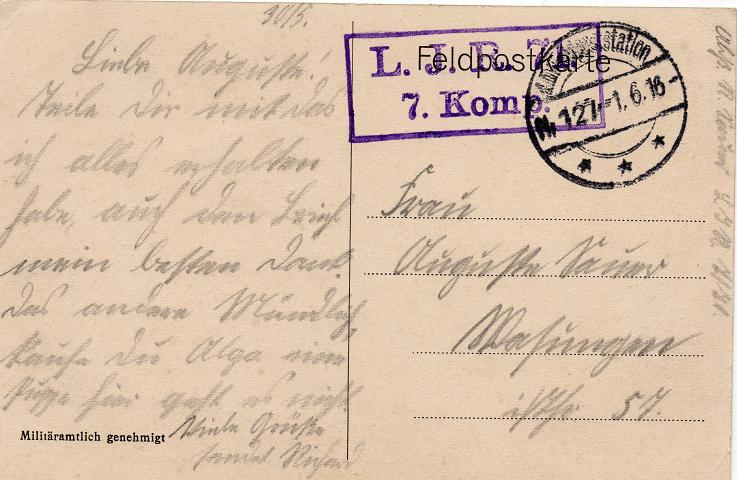 30/5.
Liebe Auguste.
Teile Dir mit das
ich alles erhalten
habe, auch den Brief
mein besten Dank.
Das andere Mündlich,
kaufe Du Olga eine
Puppe hier geht es nicht
Viele Grüße
sendet Richard
Militäramtlich genehmigt
Feldpostkarte
L. J. R. 71
7. Komp.
Nr. 127
-1.6.16-
Frau
Auguste Sauer
Wasungen
i/Thr. 57.